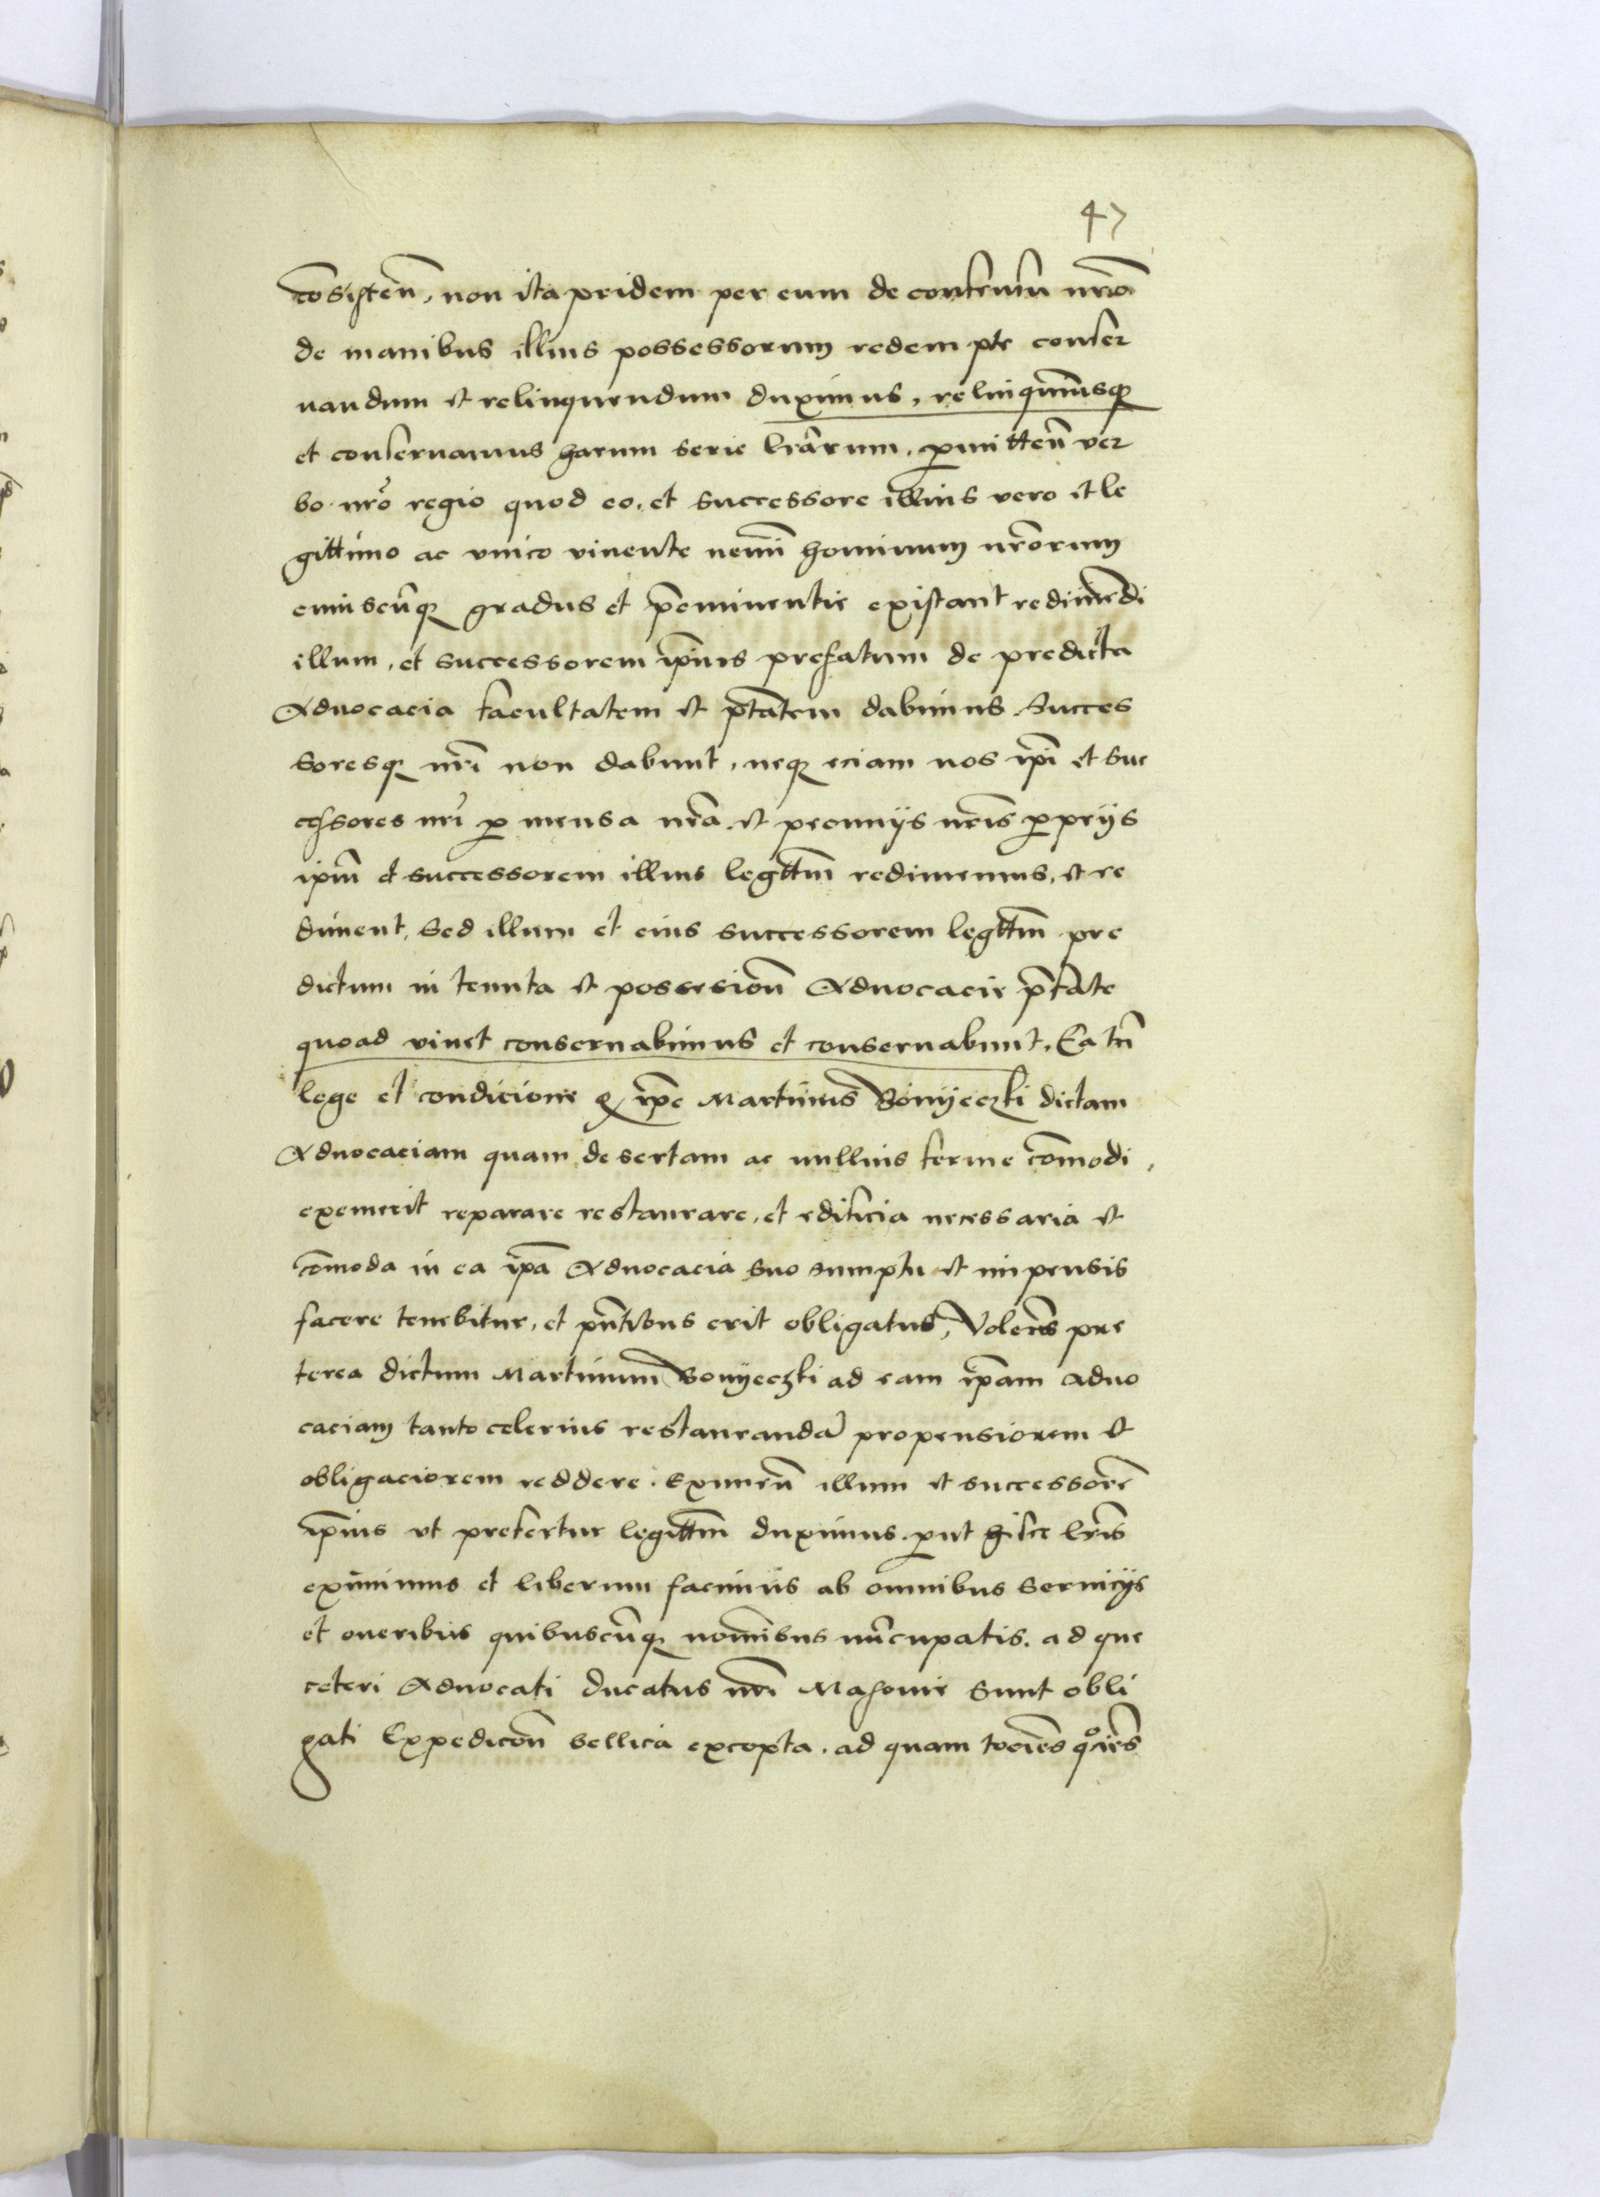 47
cōsisten̄, non ita pridem per eum de consensū nr̄o
de manibus illius possessorum redempte conser
uandum et relinquendum duximus, relinquimusq̄
et conseruamus harum serie lr̄arum. ꝓmitten̄ ver
bo nr̄o regio quod eo, et successore illius vero et le
gittimo ac vnico viuente nemī hominum nr̄orum
cuiuscūq̄ gradus et p̄eminentie existant redimēdi
illum, et successorem ip̄ius prefatum de predicta
Aduocacia facultatem et p̄tātem dabimus. Succes
soresq̄ nr̄i non dabunt, neq̄ eciam nos ip̄i et suc
cessores nr̄i ꝓ mensa nr̄a et pecunijs nr̄is ꝓprijs
ip̄m et successorem illius legttm̄ redimemus, et re
diment, Sed illum et eius successorem legttm̄ pre
dictum in tenuta et possesionē Aduocacie p̄fate
quoad viuet conseruabimus et conseruabunt, Ea tn̄
lege et condicione ꝙ ip̄e Martinus Bonyeczki dictam
Aduocaciam quam desertam ac nullius ferme cōmodi,
exemerit reparare restaurare, et edificia necessaria et
cōmoda in ea ip̄a Aduocacia suo sumptu et impensis
facere tenebitur, et p̄ntibus erit obligatus, Volen̄s pre
terea dictum Martinum Bonyeczki ad eam ip̄am aduo
caciam tanto celerius restaurandā propensiorem et
obligaciorem reddere. Eximen̄ illum et successorē
ip̄ius vt prefertur legittm̄ duximus. ꝓut hisce lr̄is
eximimus et liberum facimus ab omnibus seruicijs
et oneribus quibuscūq̄ nomībus nūcupatis. ad que
ceteri Aduocati ducatus nr̄i Masouie sunt obli
gati Expedicōn̄ bellica excepta. ad quam tociēs qͦciēs